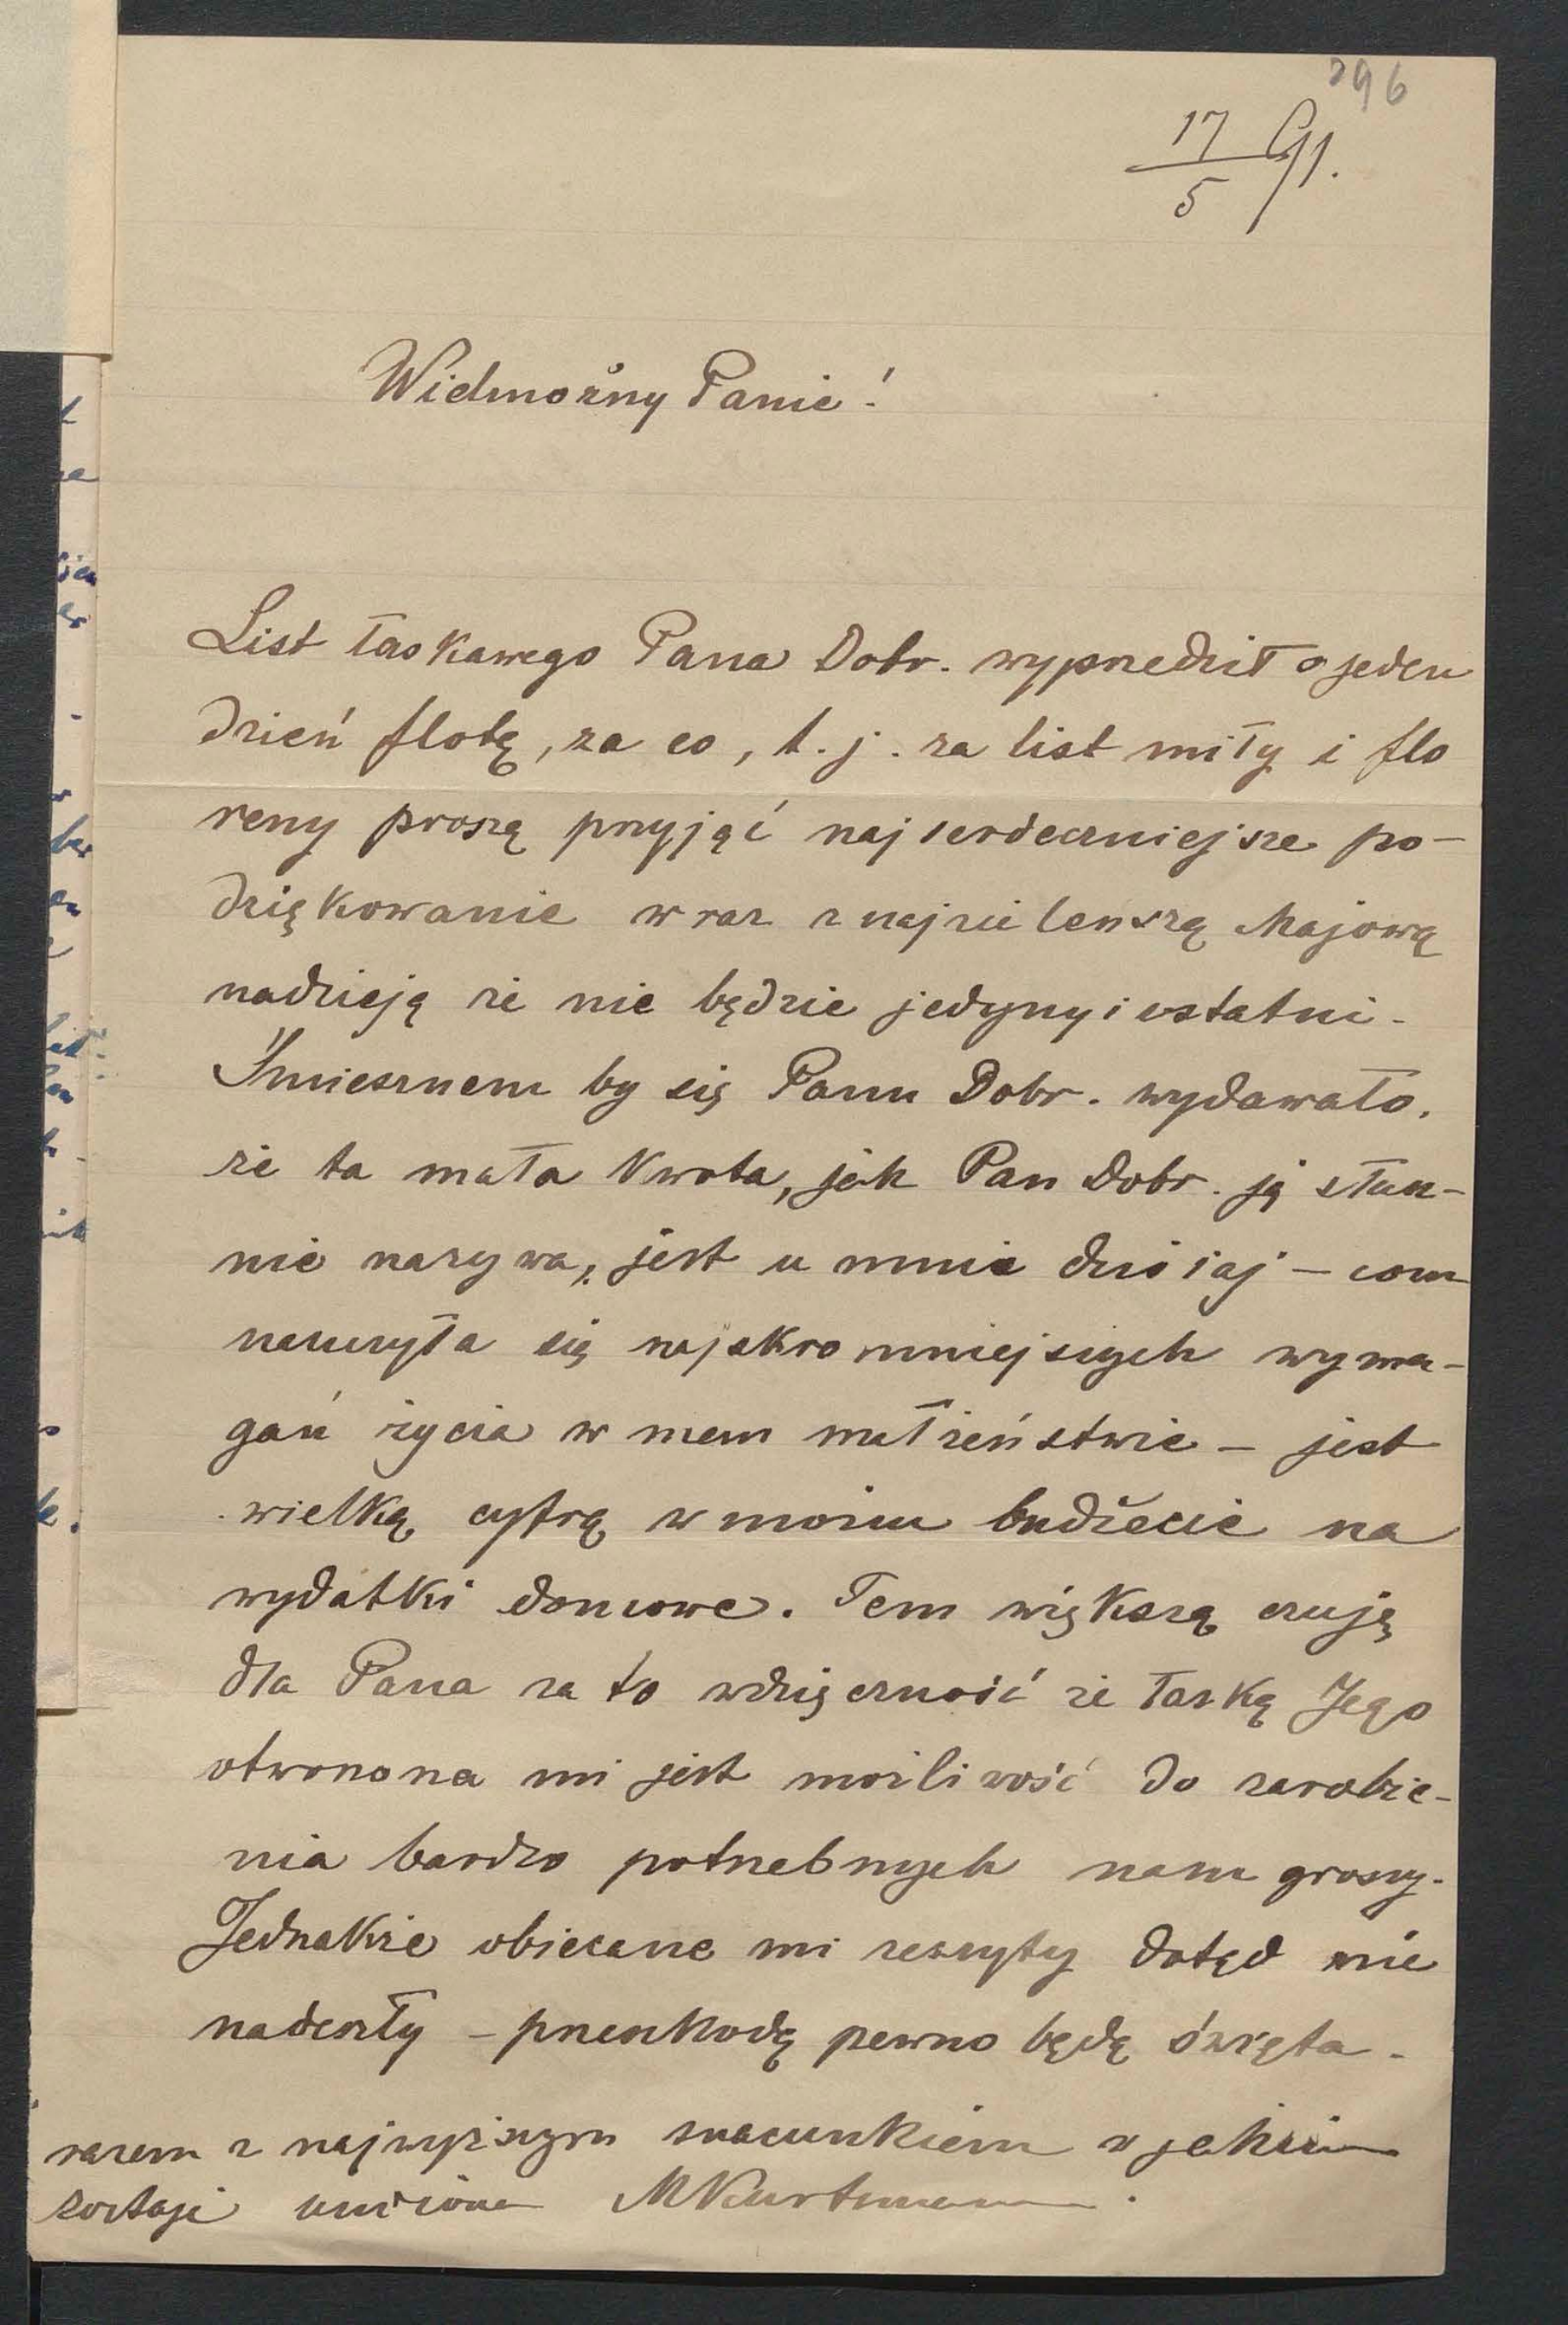 296
17/5 91.
Wielmożny Panie!
List łaskawego Pana Dobr. wyprzedził o jeden
dzień flotę, za co, t. j. za list miły i flo
reny proszę przyjąć najserdeczniejsze po-
dziękowanie wraz z najzieleńszą Majową
nadzieją że nie będzie jedyny i ostatni.
Śmiesznem by się Panu Dobr. wydawało,
że ta mała kwota, jak Pan Dobr. ją słusz-
nie nazywa, jest u mnie dzisiaj – com
nauczyła się najskromniejszych wyma-
gań życia w mem małżeństwie – jest
wielką cyfrą w moim budżecie na
wydatki domowe. Tem większą czuję
dla Pana za to wdzięczność że łaską Jego
otworzona mi jest możliwość do zarobie-
nia bardzo potrzebnych nam groszy.
Jednakże obiecane mi zeszyty dotąd nie
nadeszły – przeszkodą pewno będą święta.
razem z najwyższym szacunkiem z jakim
zostaję uniżona MKurtzmann.